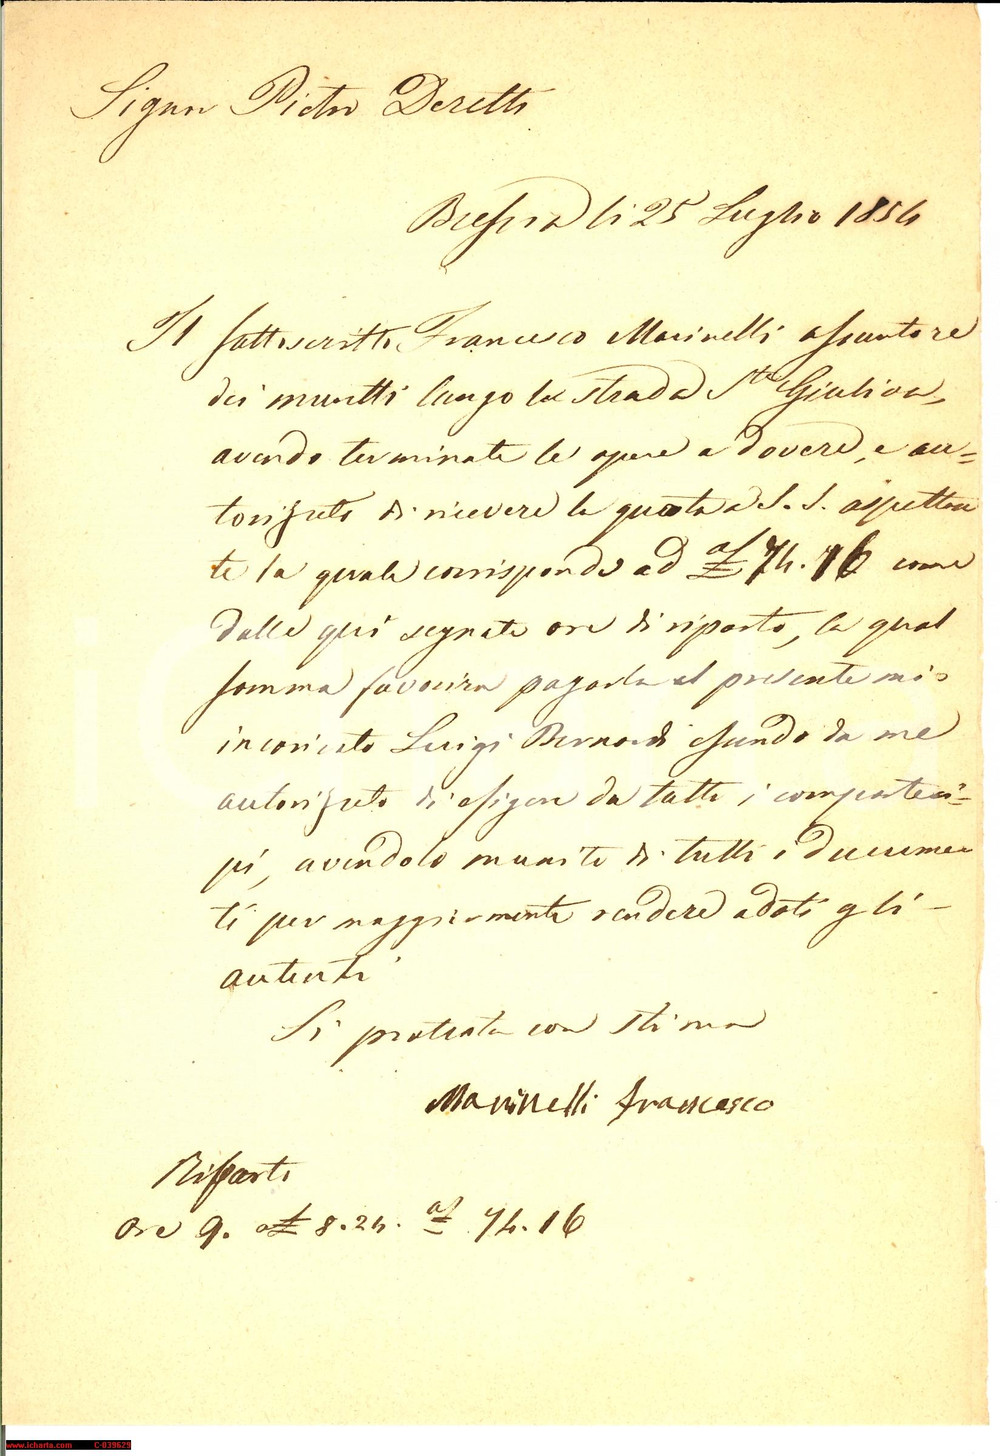 Signor Pietro Deretti
Brescia li 25 Luglio 1854
Il sottoscritto Francesco Marinelli assuntore
dei muretti lungo la strada Sta Giuliva,
avendo terminate le opere a dovere, e au=
torizzato di ricevere la quota a S. S. aspettan
te la quale corrisponde ad a£ 74.16 come
dalle qui segnate ore di riparto, la qual
somma favorirà pagarla al presente mio
incaricato Luigi Bernardi essendo da me
autorizzato di esigere da tutti i compartec=
pi, avendolo munito di tutti i documen
ti per maggiormente rendere adoti gli
autenti
Si protesta con stima
Marinelli Francesco
Riparto
Ore 9. a£ 8.24. a£ 74.16
www.icharta.com C-039629